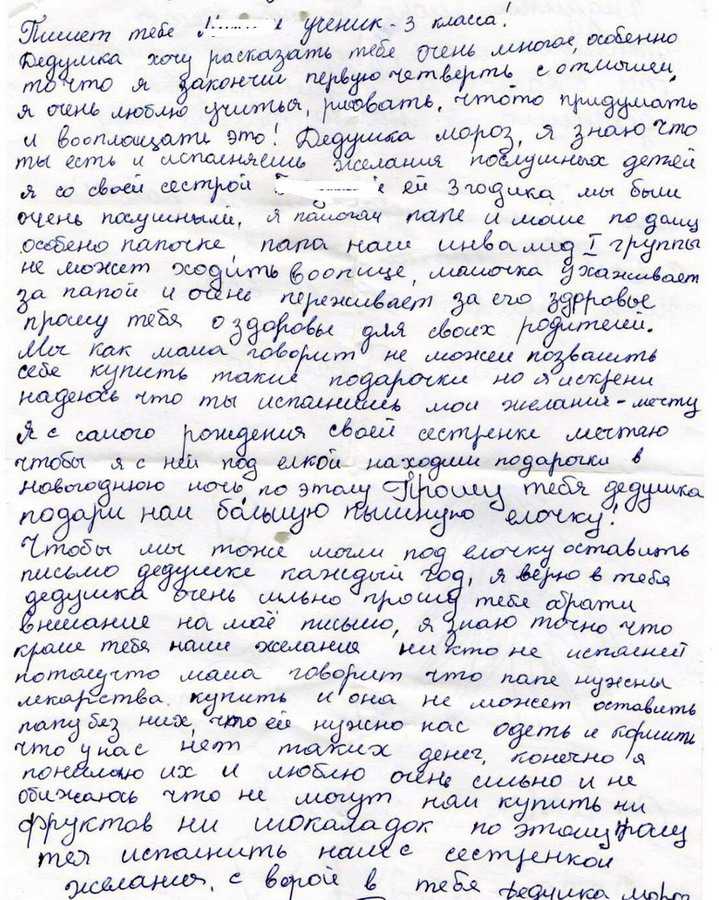 Пишет тебе М е ученик - 3 класса!
Дедушка хочу расказать тебе очень многое, особенно
то что я закончил первую четверть с отличием,
я очень люблю учиться, рисовать, что то придумать
и вооплощать это! Дедушка мороз, я знаю что
ты есть и исполняешь желания послушных детей
я со своей сестрой е ей 3 годика мы были
очень паслушными, я памогаю папе и маме по дому
особено папочке, папа наш инвалид I группы
не может ходить воопще, мамочка ухаживает
за папой и очень переживает за его здоровье
прошу тебя о здоровье для своих родителей.
Мы как мама говорит не можем позволить
себе купить такие подарочки но я искрени
надеюсь что ты исполнишь мои желания - мечту
Я с самого рождения своей сестренки мечтаю
чтобы я с ней под елкой находили подарочки в
новогоднюю ночь, по этому Прошу тебя дедушка
подари нам большую пышную елочку!
Чтобы мы тоже могли под елочку оставить
письмо дедушке каждый год, я верю в тебя
дедушка очень сильно прошу тебе обрати
внимание на моё письмо, я знаю точно что
кроме тебя наши желания ни кто не исполнит
потомучто мама говорит что папе нужны
лекарства купить и она не может оставить
папу без них, что ей нужно нас одеть и кормить
что у нас нет таких денег, конечно я
понимаю их и люблю очень сильно и не
обижаюсь что не могут нам купить ни
фруктов ни шокаладок по этому прошу
тея исполнить наше с сестренкой
желания, с верой в тебя дедушка мороз